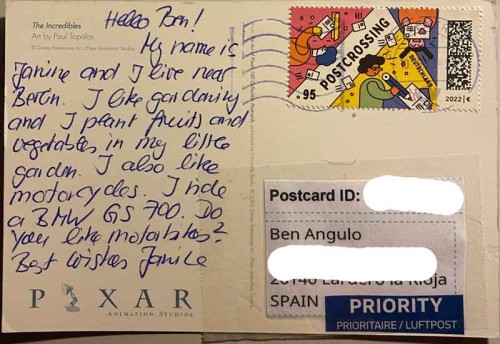 The Incredibles
Art by Paul Topolos
Hello Ben!
My name is
Janine and I live near
Berlin. I like gardening
and I plant fruits and
vegetables in my little
garden. I also like
motorcycles. I ride
a BMW GS 700. Do
you like motorbikes?
Best wishes Janine
PIXAR
ANIMATION STUDIOS
POSTCROSSING
95
2022 | €
Postcard ID:
Ben Angulo
Lardero la Rioja
SPAIN
PRIORITY
PRIORITAIRE / LUFTPOST